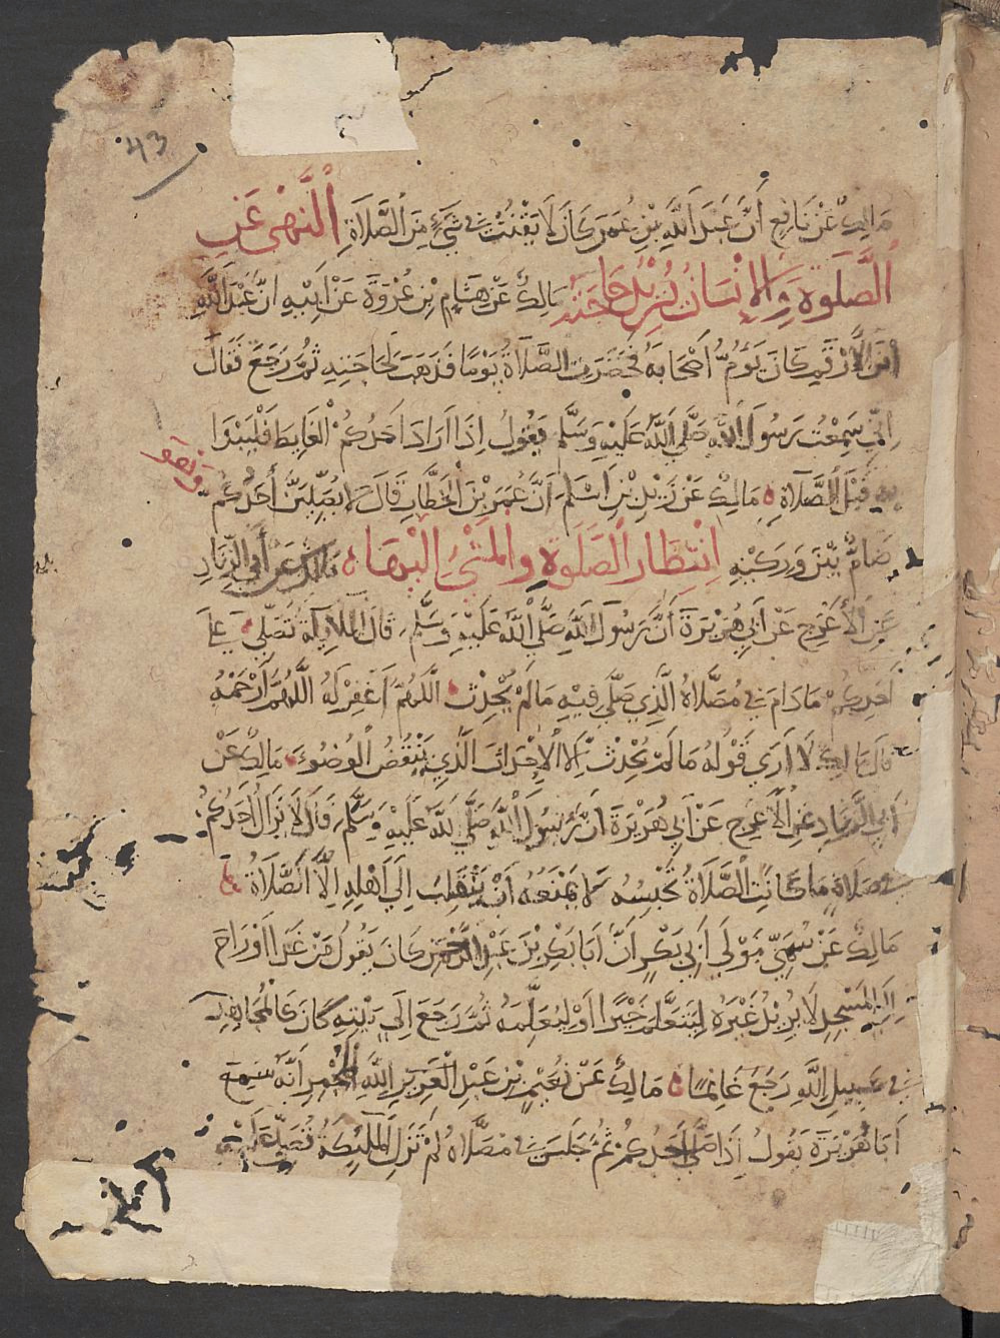 43
مَالِكٌ عَنْ نَافِعٍ أَنَّ عَبْدَ اللَّهِ بْنِ عُمَرَ كَانَ لَا يَقْنُتُ فِي شَيْءٍ مِنَ الصَّلَاةِ النَّهْيُ عَنِ
الصَّلَوةِ وَالإِنْسَانُ يُرِيدُ حَاجَتَهُ مَالِكٌ عَنْ هِشَامِ بْنِ عُرْوَةَ عَنْ أَبِيهِ أَنَّ عَبْدَ اللَّهِ
ابْنَ الأَرْقَمِ كَانَ يَؤُمُّ أَصْحَابَهُ فَحَضَرَتِ الصَّلَاةُ يَوْمًا فَذَهَبَ لِحَاجَتِهِ ثُمَّ رَجَعَ فَقَالَ
إِنِّي سَمِعْتُ رَسُولَ اللَّهِ صَلَّى اللَّهُ عَلَيْهِ وَسَلَّمَ يَقُولُ إِذَا أَرَادَ أَحَدُكُمْ الْغَايِطَ فَلْيَبْدَا
بِهِ قَبْلَ الصَّلَاةِ مَالِكٌ عَنْ زَيْدِ بْنِ أَسْلَمَ أَنَّ عُمَرَ بْنَ الْخَطَّابِ قَالَ لَا يُصَلِّيَنَّ أَحَدُكُمْ وَهُوَ
ضَامٌّ بَيْنَ وَرِكَيْهِ انْتِظَارُ الصَّلَوةِ وَالْمَشْيُ إِلَيْهَا مَالِكٌ عَنْ أَبِي الزِّنَادِ
عَنِ الأَعْرَجِ عَنْ أَبِي هُرَيْرَةَ أَنَّ رَسُولَ اللَّهِ صَلَّى اللَّهُ عَلَيْهِ وَسَلَّمَ قَالَ الْمَلَايِكَةُ تُصَلِّي عَلَى
أَحَدِكُمْ مَا دَامَ فِي مُصَلَّاهُ الَّذِي صَلَّى فِيْهِ مَا لَمْ يُحْدِثْ اللَّهُمَّ اغْفِرْ لَهُ اللَّهُمَّ ارْحَمْهُ
قَالَ مَالِكٌ لَا أَرَى قَوْلَهُ مَا لَمْ يُحْدِثْ إِلَّا الْإِحْدَاثَ الَّذِي يَنْقُضُ الْوُضُوءَ مَالِكٌ عَنْ
أَبِي الزِّنَادِ عَنِ الْأَعْرَجِ عَنْ أَبِي هُرَيْرَةَ أَنَّ رَسُولَ اللَّهِ صَلَّى اللَّهُ عَلَيْهِ وَسَلَّمَ قَالَ لَا يَزَالُ أَحَدُكُمْ
فِي صَلَاةٍ مَا كَانَتِ الصَّلَاةُ تَحْبِسُهُ لَا يَمْنَعُهُ أَنْ يَنْقَلِبَ إِلَى أَهْلِهِ إِلَّا الصَّلَاةُ
مَالِكٌ عَنْ سُمَيٍّ مَوْلَى أَبِي بَكْرٍ أَنَّ أَبَا بَكْرِ بْنَ عَبْدِ الرَّحْمَنِ كَانَ يَقُولُ مَنْ غَدَا أَوْ رَاحَ
إِلَى الْمَسْجِدِ لَا يُرِيدُ غَيْرَهُ لِيَتَعَلَّمَ خَيْرًا أَوْ لِيُعَلِّمَهُ ثُمَّ رَجَعَ إِلَى بَيْتِهِ كَانَ كَالْمُجَاهِدِ
فِي سَبِيلِ اللَّهِ رَجَعَ غَانِمًا مَالِكٌ عَنْ نُعَيْمِ بْنِ عَبْدِ اللَّهِ الْمُجْمِرِ أَنَّهُ سَمِعَ
أَبَا هُرَيْرَةَ يَقُولُ إِذَا صَلَّى أَحَدُكُمْ ثُمَّ جَلَسَ فِي مُصَلَّاهُ لَمْ تَزَلِ الْمَلَيِكَةُ تُصَلِّي عَلَيْهِ